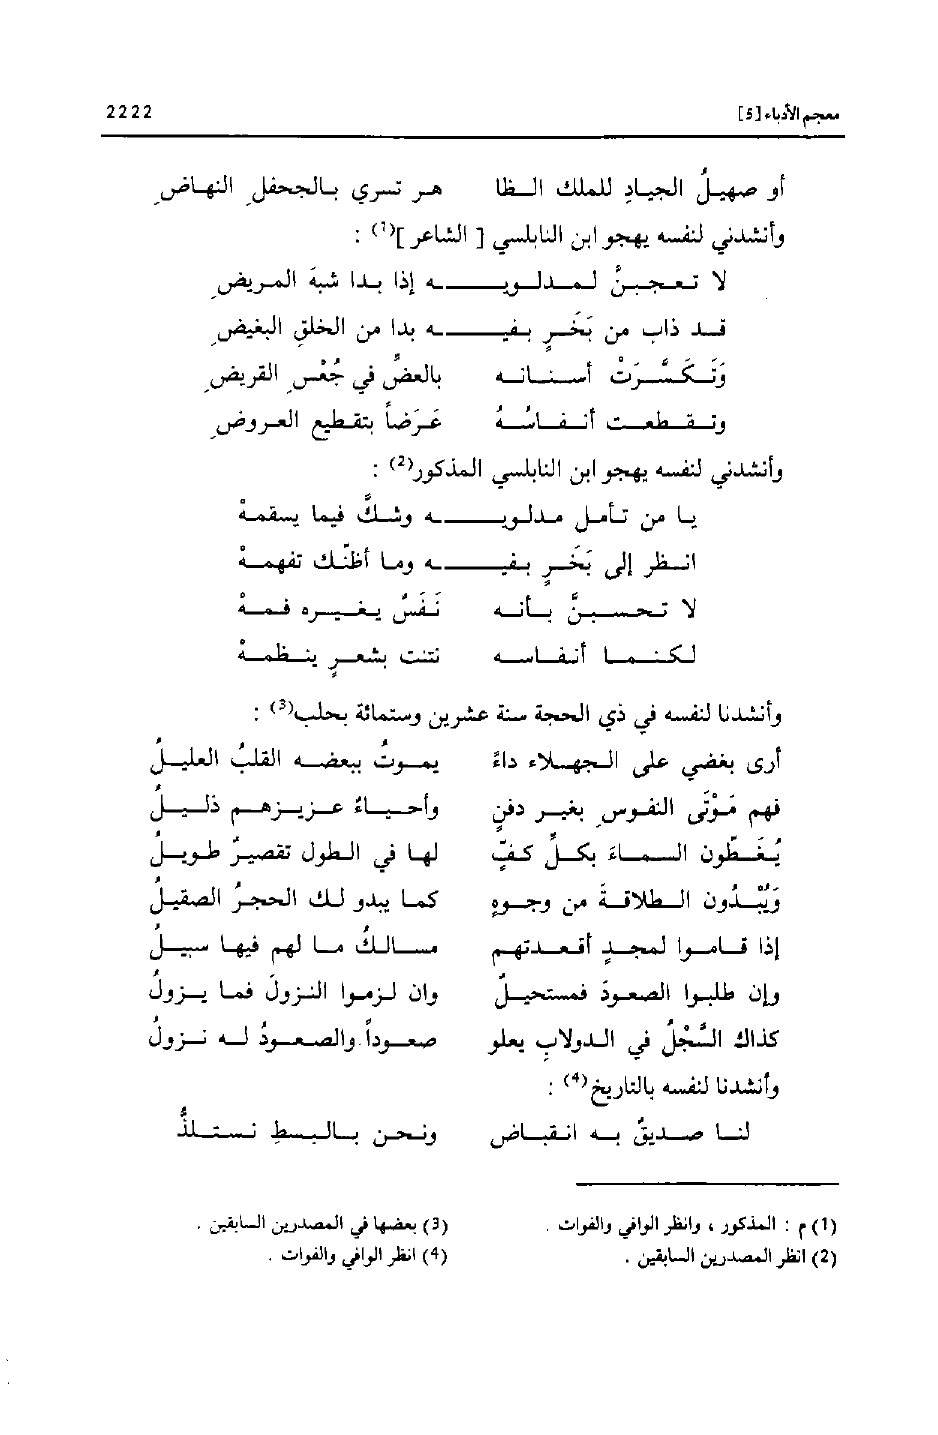 معجم الأدباء [5] 2222
أو صهيلُ الجيادِ للملك الظا هر تسري بالجحفلِ النهاضِ
وأنشدني لنفسه يهجو ابن النابلسي [ الشاعر ](1) :
لا تعجبنَّ لمدلويـه إذا بدا شبهَ المريضِ
قد ذاب من بَخَرٍ بفيـه بدا من الخلقِ البغيضِ
وَتَكَسَّرَتْ أسنانه بالعضِّ في جُعْسِ القريضِ
وتقطعت أنفاسُهُ عَرَضاً بتقطيع العروضِ
وأنشدني لنفسه يهجو ابن النابلسي المذكور(2) :
يا من تأمل مدلويـه وشكَّ فيما يسقمهْ
انظر إلى بَخَرٍ بفيـه وما أظنّك تفهمهْ
لا تحسبنَّ بأنه نَفَسٌ يغيره فمهْ
لكنما أنفاسه نتنت بشعرٍ ينظمهْ
وأنشدنا لنفسه في ذي الحجة سنة عشرين وستمائة بحلب(3) :
أرى بغضي على الجهلاء داءً يموتُ ببعضه القلبُ العليلُ
فهم مَوْتَى النفوسِ بغير دفنٍ وأحياءٌ عزيزهم ذليلُ
يُغَطّون السماءَ بكلِّ كفٍّ لها في الطول تقصيرٌ طويلُ
وَيُبْدُون الطلاقةَ من وجوهٍ كما يبدو لك الحجرُ الصقيلُ
إذا قاموا لمجدٍ أقعدتهم مسالكُ ما لهم فيها سبيلُ
وإن طلبوا الصعودَ فمستحيلٌ وإن لزموا النزولَ فما يزولُ
كذاك السَّجْلُ في الدولابِ يعلو صعوداً والصعودُ له نزولُ
وأنشدنا لنفسه بالتاريخ(4) :
لنا صديقٌ به انقباض ونحن بالبسط نستلذُّ
(1) م : المذكور ، وانظر الوافي والفوات .
(2) انظر المصدرين السابقين .
(3) بعضها في المصدرين السابقين .
(4) انظر الوافي والفوات .